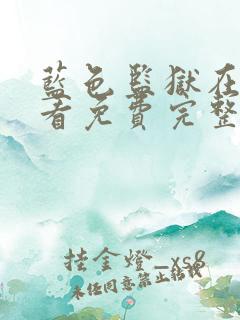 藍色監獄在
看免費完整
挂金燈_xs8
未任同意禁止轉載